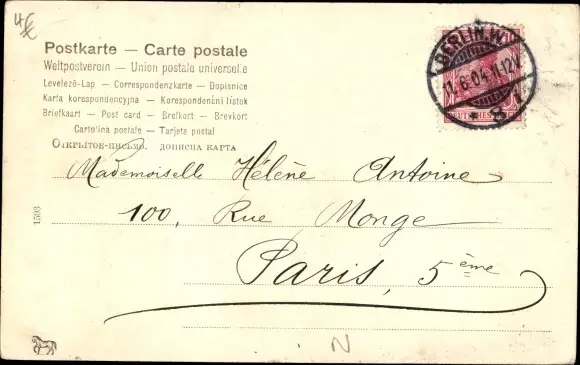 4€
Postkarte — Carte postale
Weltpostverein — Union postale universelle
Levelező-Lap — Correspondenzkarte — Dopisnice
Karta korespondencyjna — Korespondenční lístek
Briefkaart — Post card — Brefkort — Brevkort
Cartolina postale — Tarjeta postal
Открытое письмо. дописна карта
BERLIN.W.
11.6.04.11-12V.
* 8 *
DEUTSCHES REICH
Mademoiselle Hélène Antoine
100, Rue Monge
Paris, 5ème
1503
N